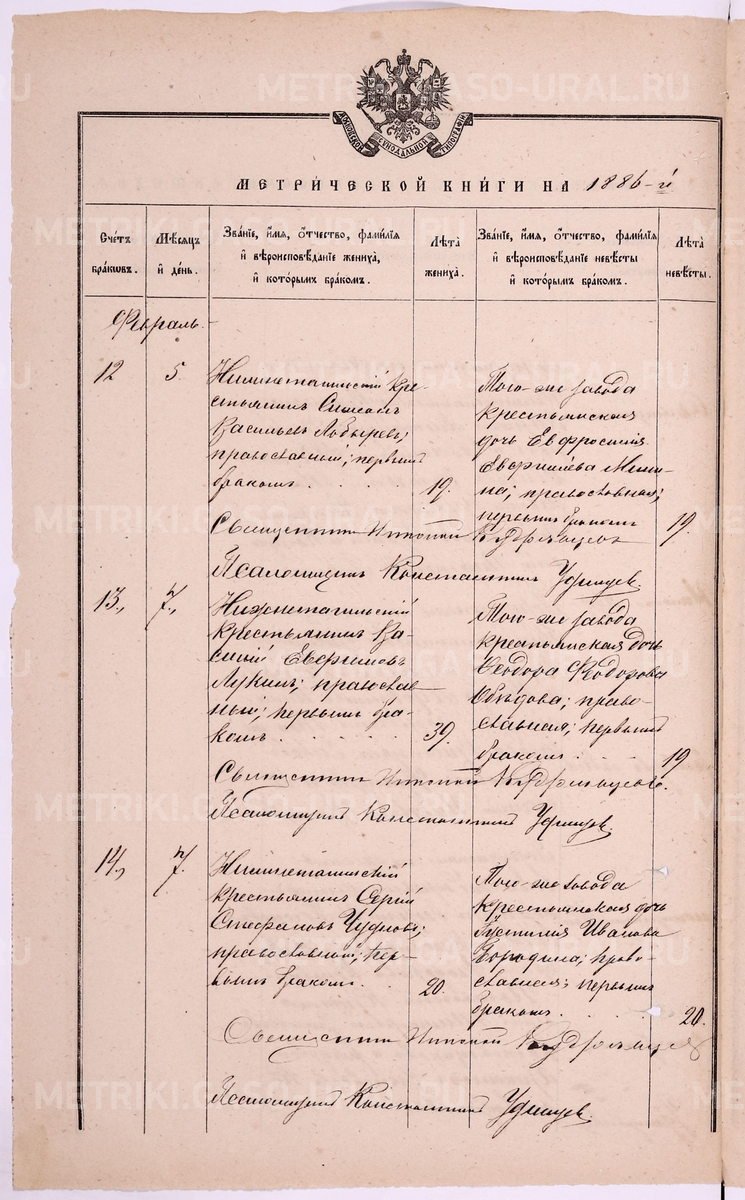 МОСКОВСКОЙ СѴНОДАЛЬНОЙ ТИПОГРАФІИ
МЕТРИ́ЧЕСКОЙ КНИ́ГИ НА 1886-й
Сче́тъ бра́кѡвъ.
Мѣ́сяцъ и҆ де́нь.
Зва́нїе, и҆́мя, ѻ҆́тчество, фами́лїя и҆ вѣроисповѣ́данїе жениха̀, и҆ кото́рымъ бра́комъ.
Лѣ̑та̀ жениха̀.
Зва́нїе, и҆́мя, ѻ҆́тчество, фами́лїя и҆ вѣроисповѣ́данїе невѣ́сты и҆ кото́рымъ бра́комъ.
Лѣ̑та̀ невѣ́сты.
Февраль.
12
5
Нижнетагильскій кре-
стьянинъ Симеонъ
Васильевъ Лобыревъ;
православный; первымъ
бракомъ
19.
Того-же завода
крестьянская
дочь Евфросинія
Евфиміева Мини-
на; православная;
первымъ бракомъ
19.
Священникъ
Псаломщикъ Константинъ Удинцев.
13.,
7.,
Нижнетагильскій
крестьянинъ Ва-
силій Евфимовъ
Лукинъ; православ-
ный; первымъ бра-
комъ
39.
Того-же завода
крестьянская дочь
Феодора Федорова
Обѣдова; право-
славная; первымъ
бракомъ
19.
Священникъ
Псаломщикъ Константинъ Удинцев.
14.,
7.
Нижнетагильскій
крестьянинъ Сергій
Стефановъ Чудновъ;
православный; пер-
вымъ бракомъ
20.
Того-же завода
крестьянская дочь
Іустинія Иванова
Бородина; право-
славная; первымъ
бракомъ
20.
Священникъ
Псаломщикъ Константинъ Удинцев.
METRIKI.GASO-URAL.RU